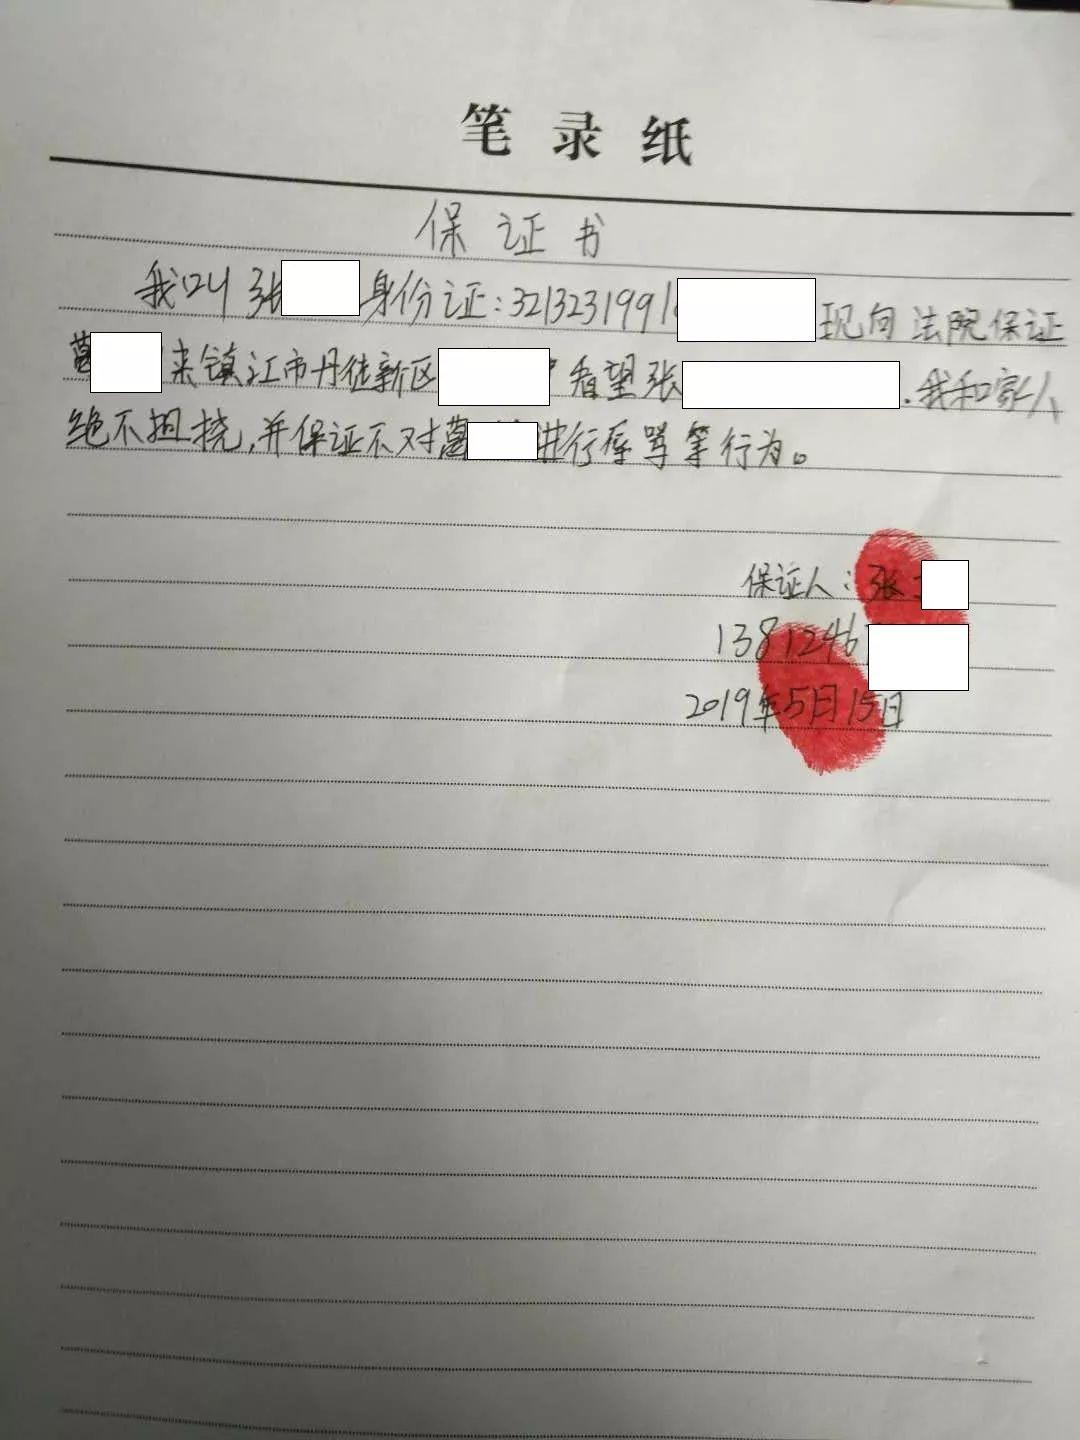 笔录纸
保证书
我叫张 身份证:321323199 现向法院保证
葛 来镇江市丹徒新区 看望张 .我和家人
绝不阻挠,并保证不对葛 进行辱骂等行为。
保证人:张
1381246
2019年5月15日